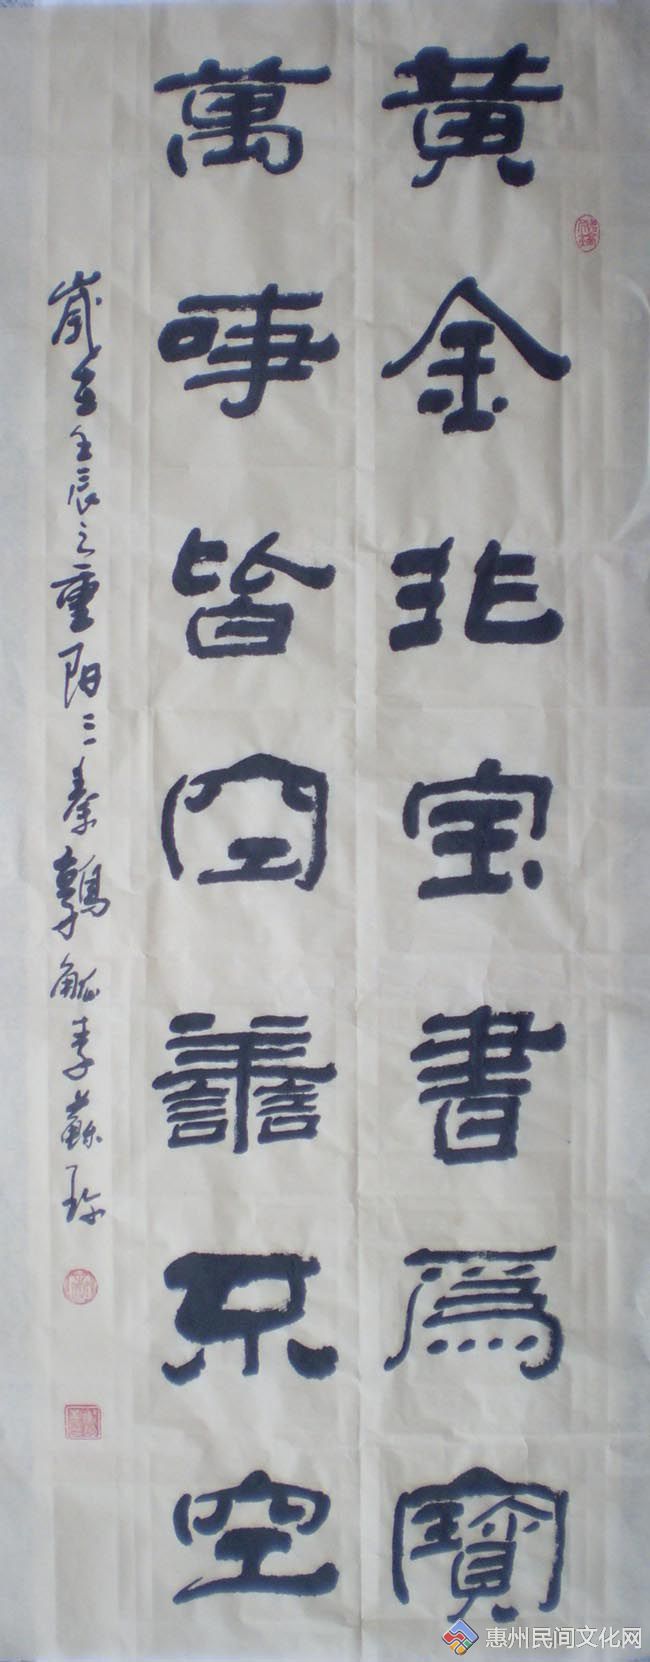 黄金非宝書爲寶
萬事皆空善不空
歲在壬辰之重阳三秦鶉觚李蘇珍
惠州民间文化网